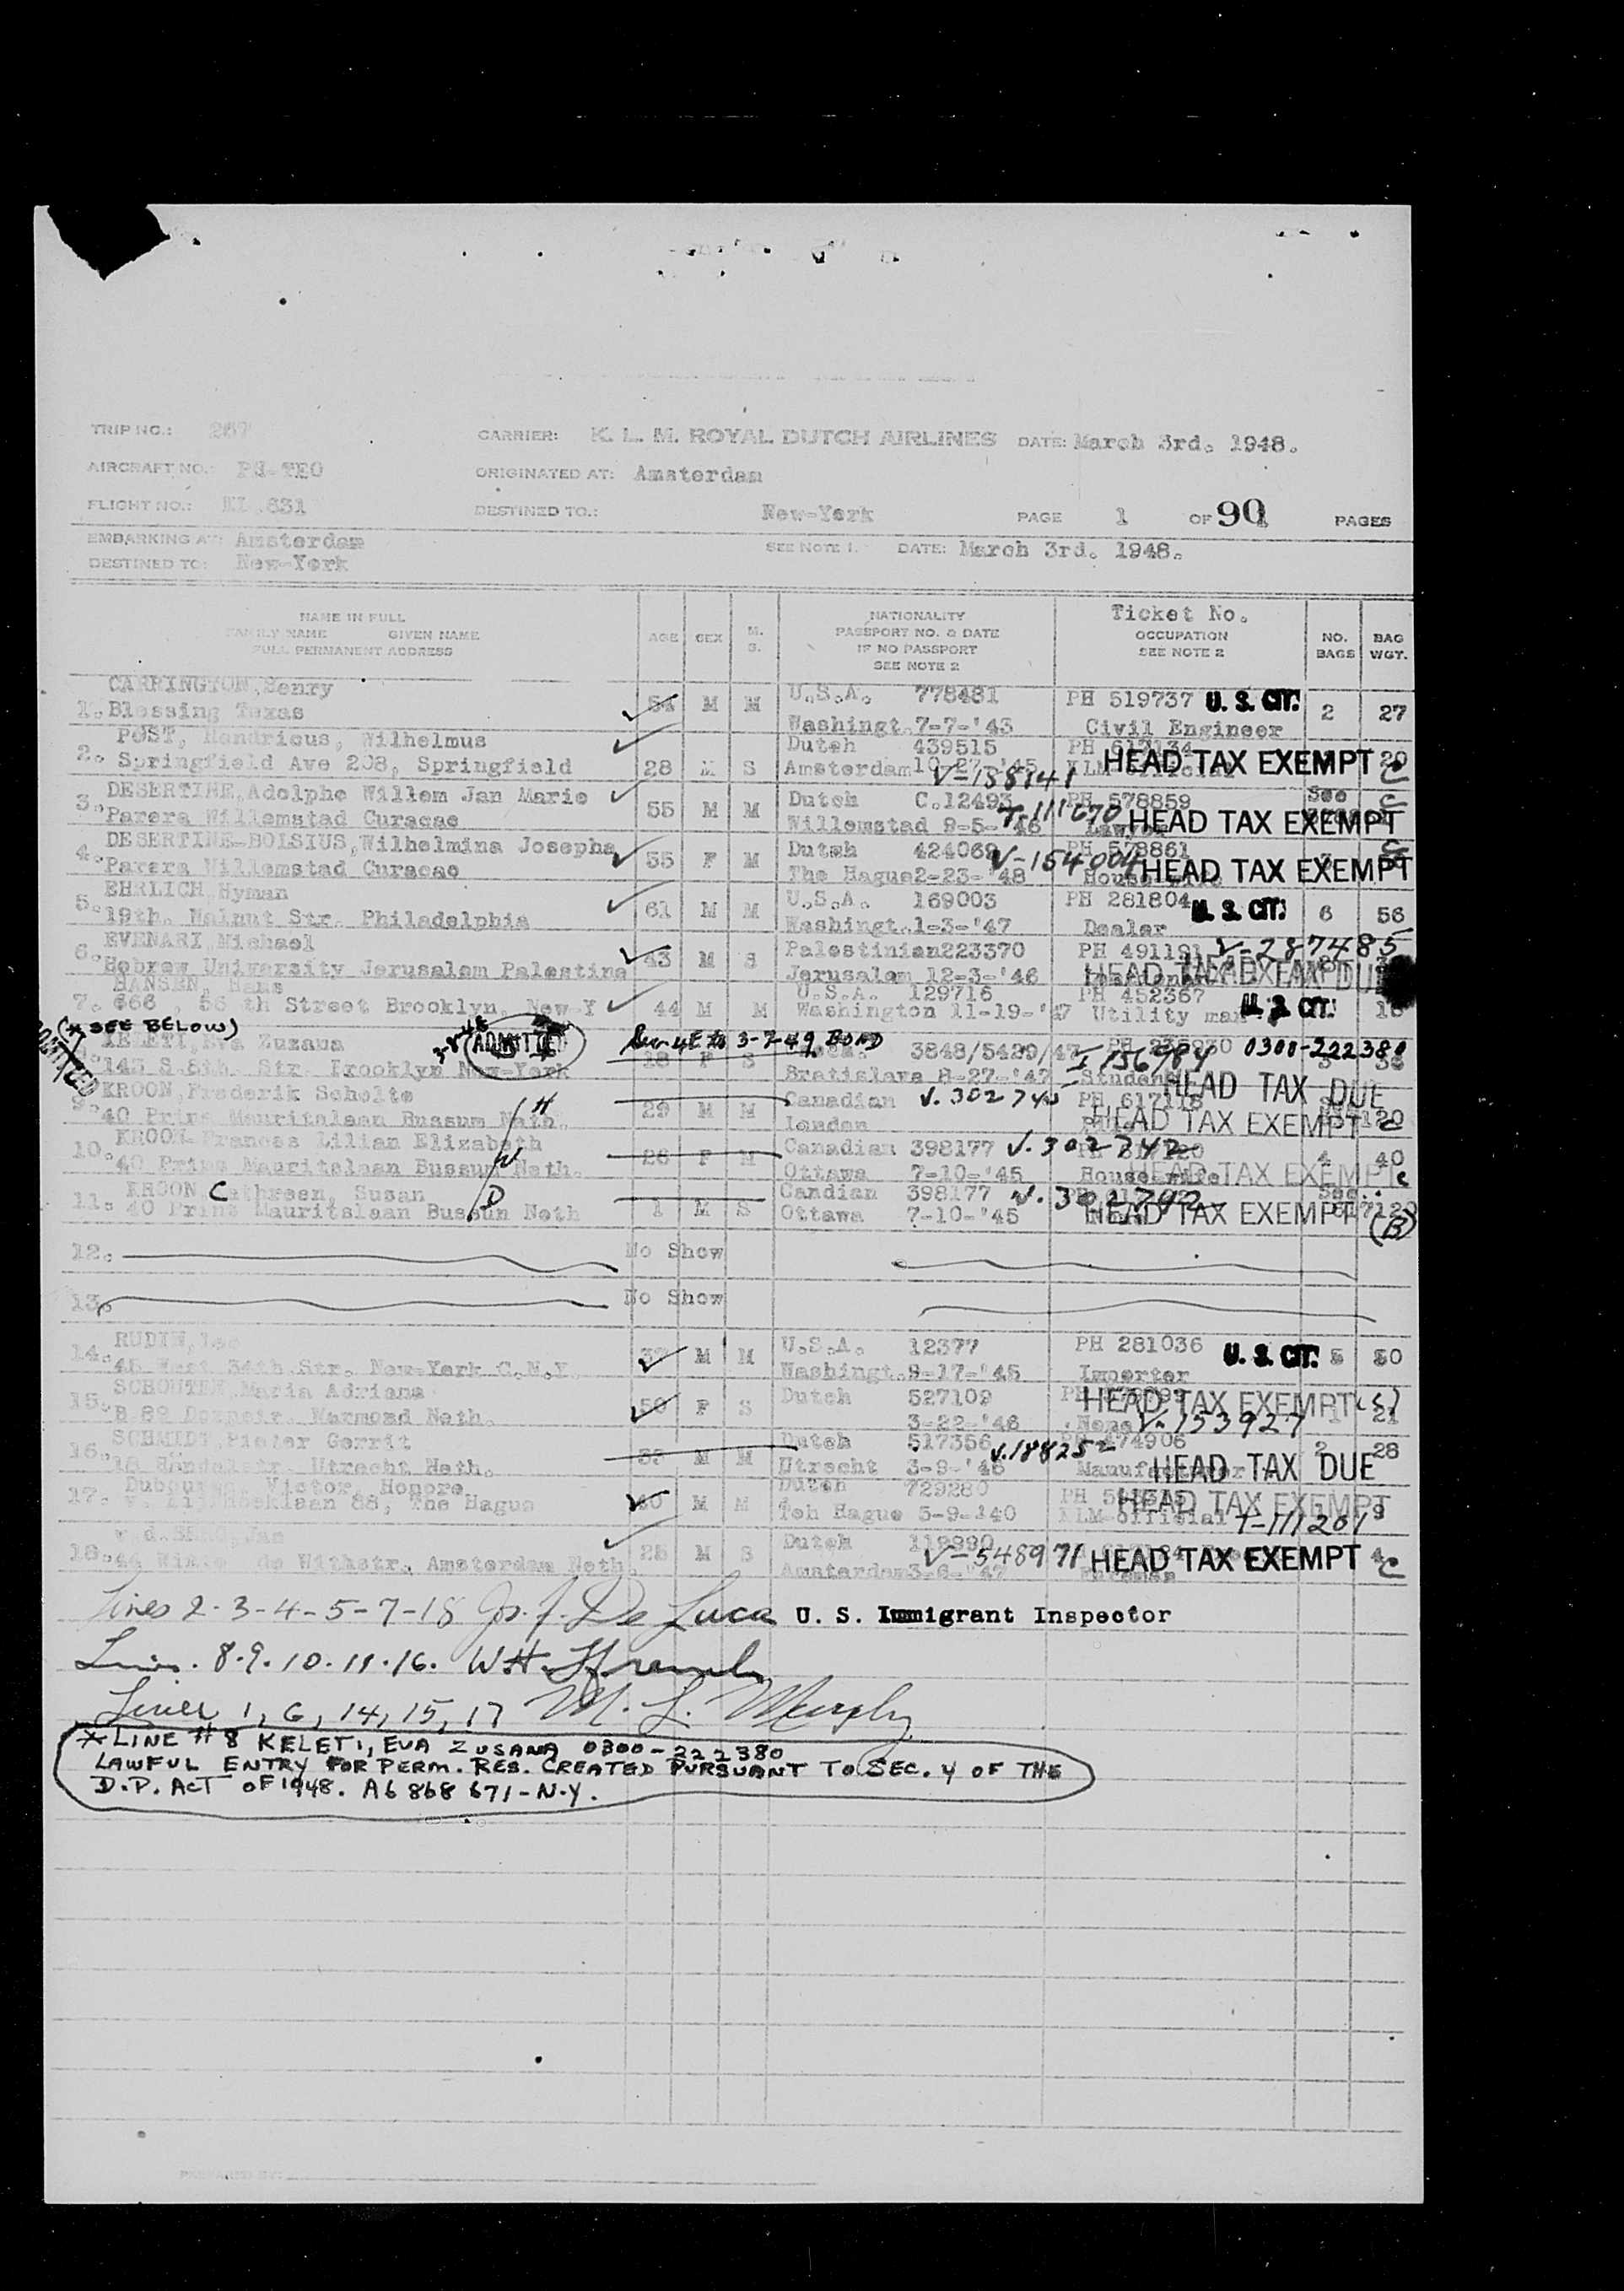 TRIP NO.: 267 CARRIER: K. L. M. ROYAL DUTCH AIRLINES DATE: March 3rd. 1948.
AIRCRAFT NO.: PH-TEO ORIGINATED AT: Amsterdam
FLIGHT NO.: KL.631 DESTINED TO.: New-York PAGE 1 OF 90 PAGES
EMBARKING AT: Amsterdam SEE NOTE 1. DATE: March 3rd. 1948.
DESTINED TO: New-York
NAME IN FULL
FAMILY NAME GIVEN NAME
FULL PERMANENT ADDRESS
AGE SEX M. S.
NATIONALITY
PASSPORT NO. & DATE
IF NO PASSPORT
SEE NOTE 2
Ticket No.
OCCUPATION
SEE NOTE 2
NO. BAGS
BAG WGT.
CARRINGTON, Henry U.S.A. 778481 PH 519737 U. S. CIT.
1. Blessing Texas 54 M M Washingt. 7-7-'43 Civil Engineer 2 27
POST, Hendricus, Wilhelmus Dutch 439515 PH 617134
2. Springfield Ave 208, Springfield 28 M S Amsterdam 10-27-'45 V-138141 KLM official HEAD TAX EXEMPT 20 C
DESERTINE, Adolphe Willem Jan Marie Dutch C.12493 PH 578859 See C
3. Parera Willemstad Curacao 55 M M Willemstad 9-5-'46 T-111670 Lawyer HEAD TAX EXEMPT
DESERTINE-BOLSIUS, Wilhelmina Josepha Dutch 424069 PH 578861
4. Parera Willemstad Curacao 55 F M The Hague 2-23-'48 V-154004 House wife HEAD TAX EXEMPT
EHRLICH, Hyman U.S.A. 169003 PH 281804 U. S. CIT.
5. 19th. Walnut Str. Philadelphia 61 M M Washingt. 1-3-'47 Dealer 6 56
EVENARI, Michael Palestinian 223370 PH 491191 V-287485
6. Hebrew University Jerusalem Palestina 43 M S Jerusalem 12-3-'46 HEAD TAX DUE
HANSEN, Hans U.S.A. 129716 PH 452367
7. 666, 56 th Street Brooklyn, New-Y 44 M M Washington 11-19-'47 Utility man U. S. CIT.
(* SEE BELOW) ADMITTED 3-7-49 BOND
ADMITTED
KELETI, Eva Zuzana 3848/5429/47 I 156984 0300-222380
143 S. 8th. Str. Brooklyn New-York 18 F S Bratislava 8-27-'47 Student 3 36
HEAD TAX DUE
KROON, Frederik Scholte Canadian V.302740 PH 617118
9. 40 Prins Mauritslaan Bussum Neth. H 29 M M London HEAD TAX EXEMPT C
KROON-Frances Lilian Elizabeth Canadian 398177 V.302742
10. 40 Prins Mauritslaan Bussum Neth. W 26 F M Ottawa 7-10-'45 House wife 4 40
HEAD TAX EXEMPT C
KROON Cathreen, Susan D Candian 398177 V.302792 See
11. 40 Prins Mauritslaan Bussum Neth 1 M S Ottawa 7-10-'45 HEAD TAX EXEMPT (B)
12. No Show
13. No Show
RUDIN, Leo U.S.A. 12377 PH 281036 U. S. CIT.
14. 45 West 34th Str. New-York C.N.Y. M M Washingt. 9-17-'45 Importer 5 50
SCHOUTEN, Maria Adriana Dutch 527109 HEAD TAX EXEMPT
15. 50 F S 3-22-'46 None V-153927 1 21
SCHMIDT Pieter Gerrit Dutch 517356 V.188252 PH 474906 2 28
16. 18 Handelstr. Utrecht Neth. 33 M M Utrecht 3-9-'46 Manufacturer HEAD TAX DUE
Victor, Honore Dutch 729280 HEAD TAX EXEMPT
17. 88, The Hague 40 M M Teh Hague 5-9-'40 KLM official T-111201 9
Dutch 119990
18. 44 Witte de Withstr. Amsterdam Neth. 25 M S Amsterdam 3-6-'47 V-548971 HEAD TAX EXEMPT 4 C
Lines 2-3-4-5-7-18 Jos. J. De Luca U. S. Immigrant Inspector
Lines. 8.9.10.11.16. W.H.
Lines 1, 6, 14, 15, 17 M. L. Murphy
* LINE # 8 KELETI, EVA ZUSANA 0300-222380
LAWFUL ENTRY FOR PERM. RES. CREATED PURSUANT TO SEC. 4 OF THE
D.P. ACT OF 1948. A6 868 671-N.Y.
PREPARED BY: